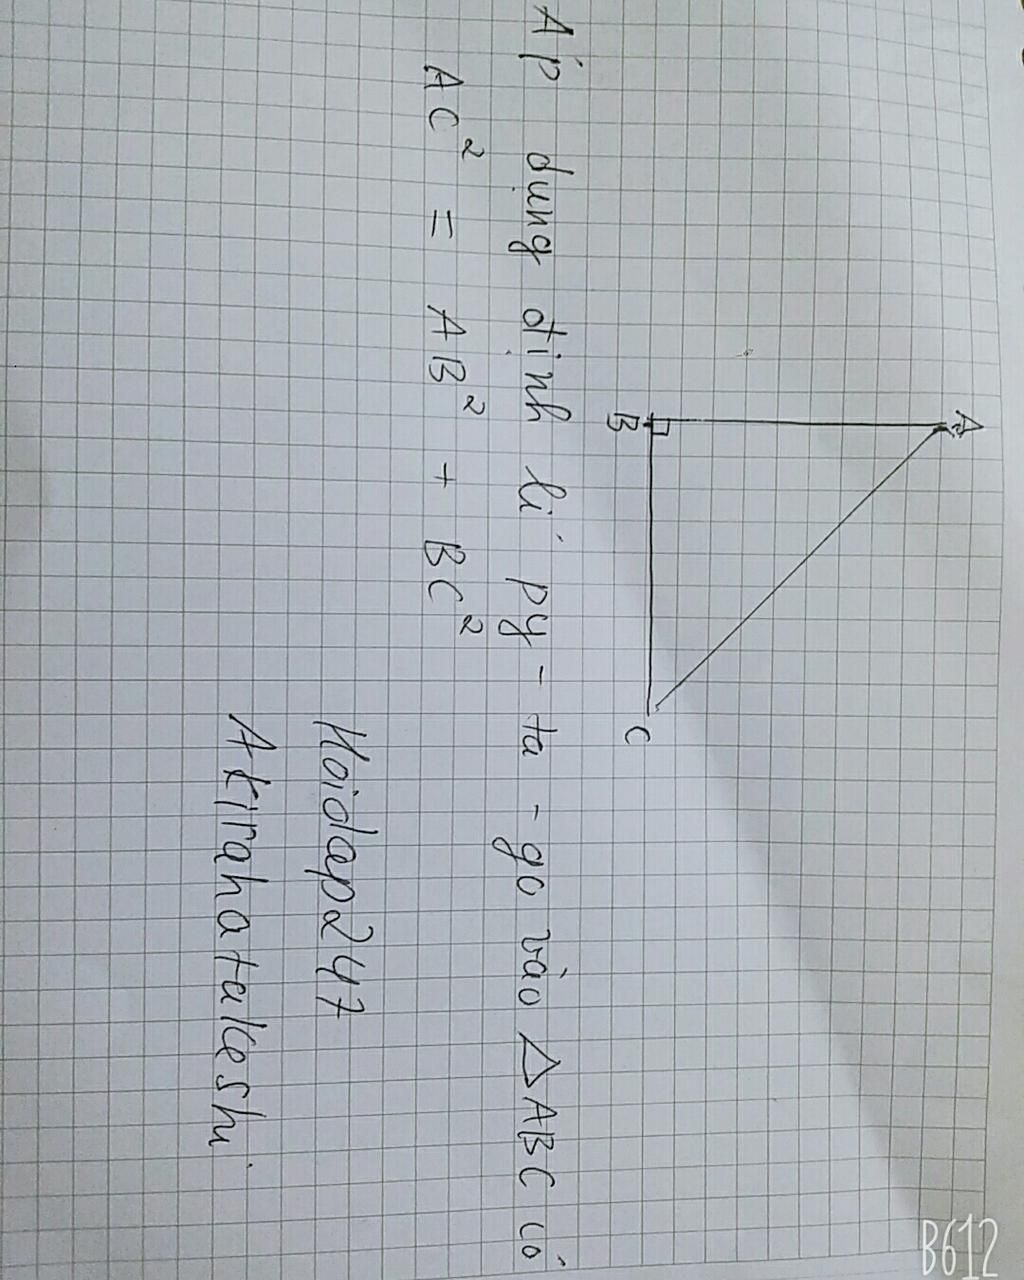 A
B
C
Áp dụng định lí py-ta-go vào △ABC có
AC² = AB² + BC²
Hoidap247
Akirahatakeshi
B612